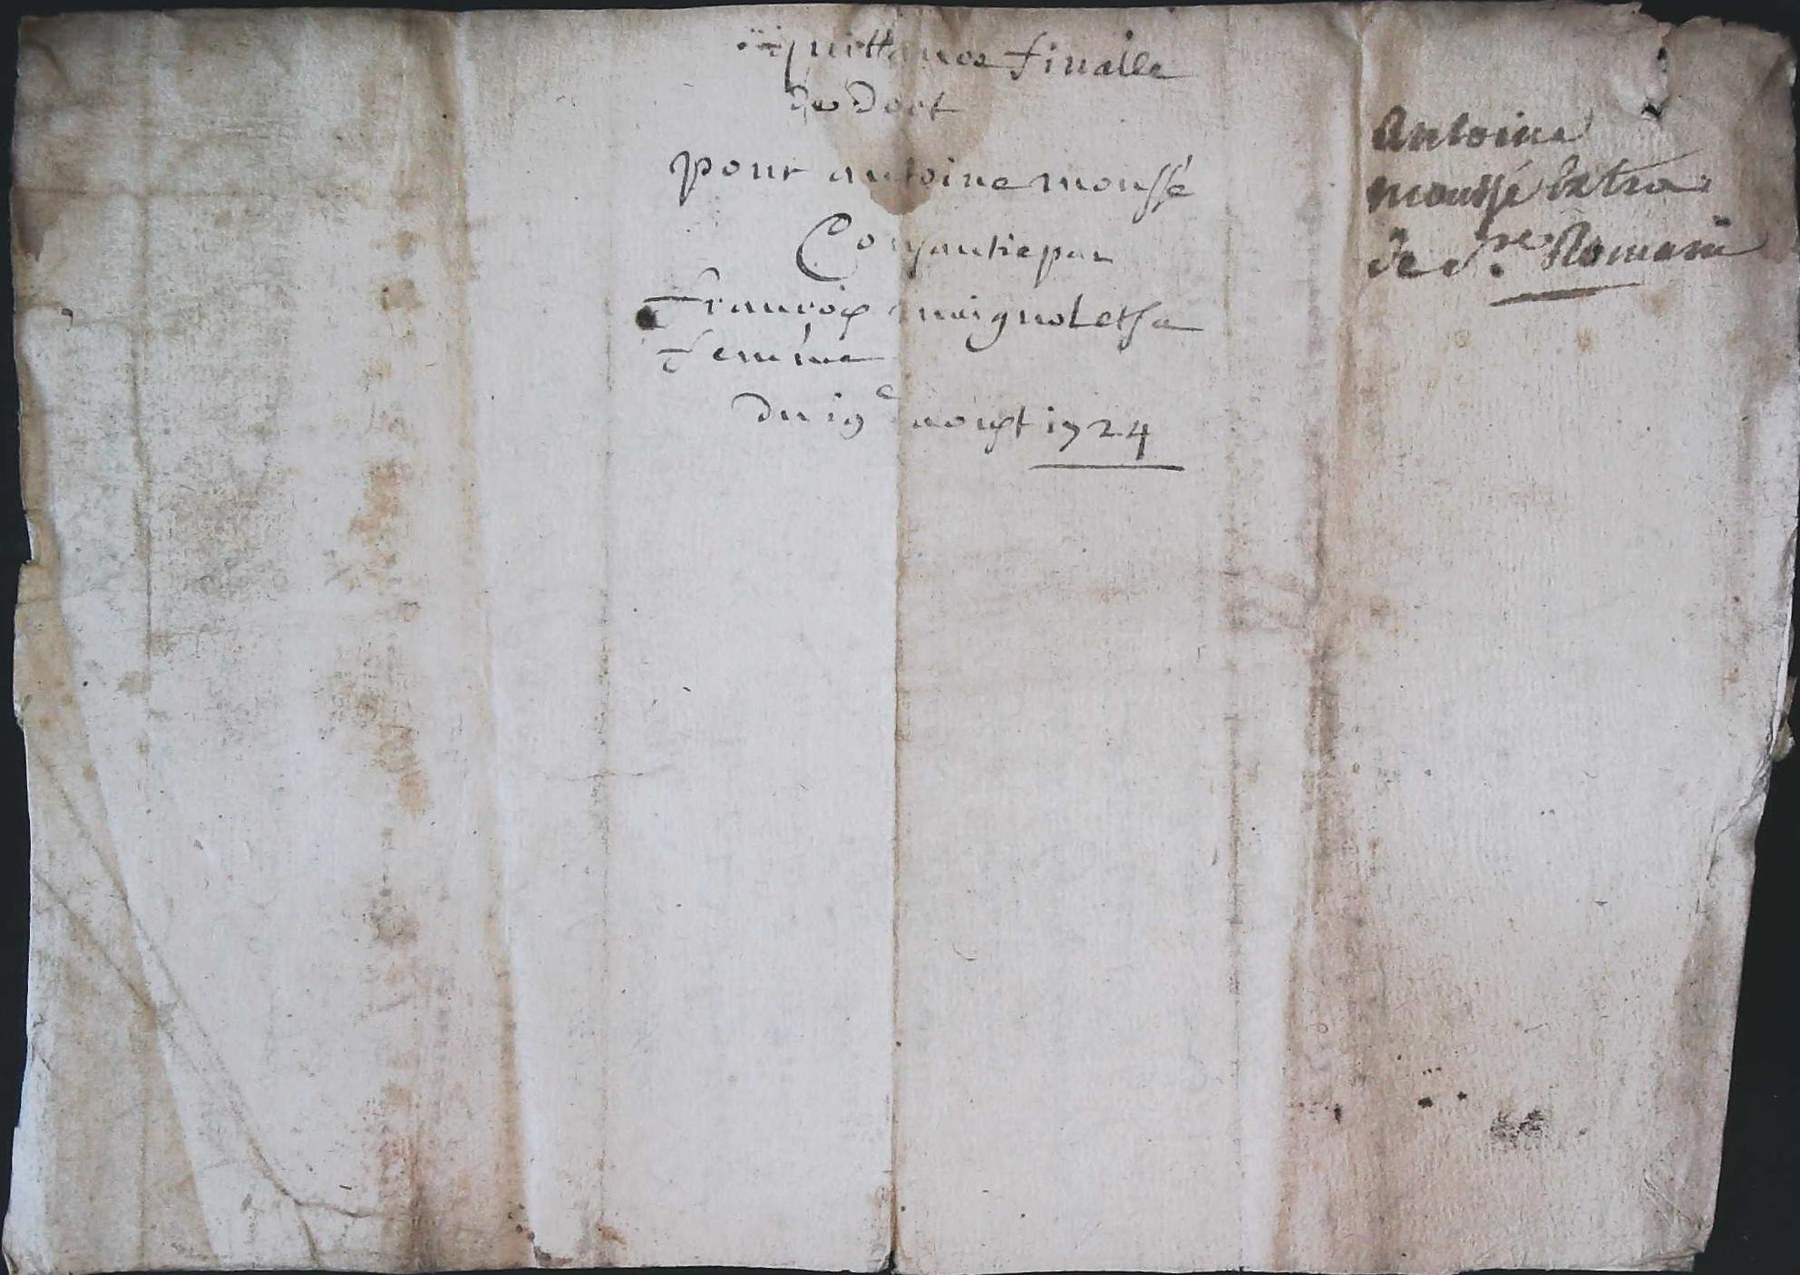 quittance finalle
de dott
pour antoine moussé
Consantie par
françois maignol et sa
femme
du 19e aoust 1724
Antoine
moussé
de Ste Romain